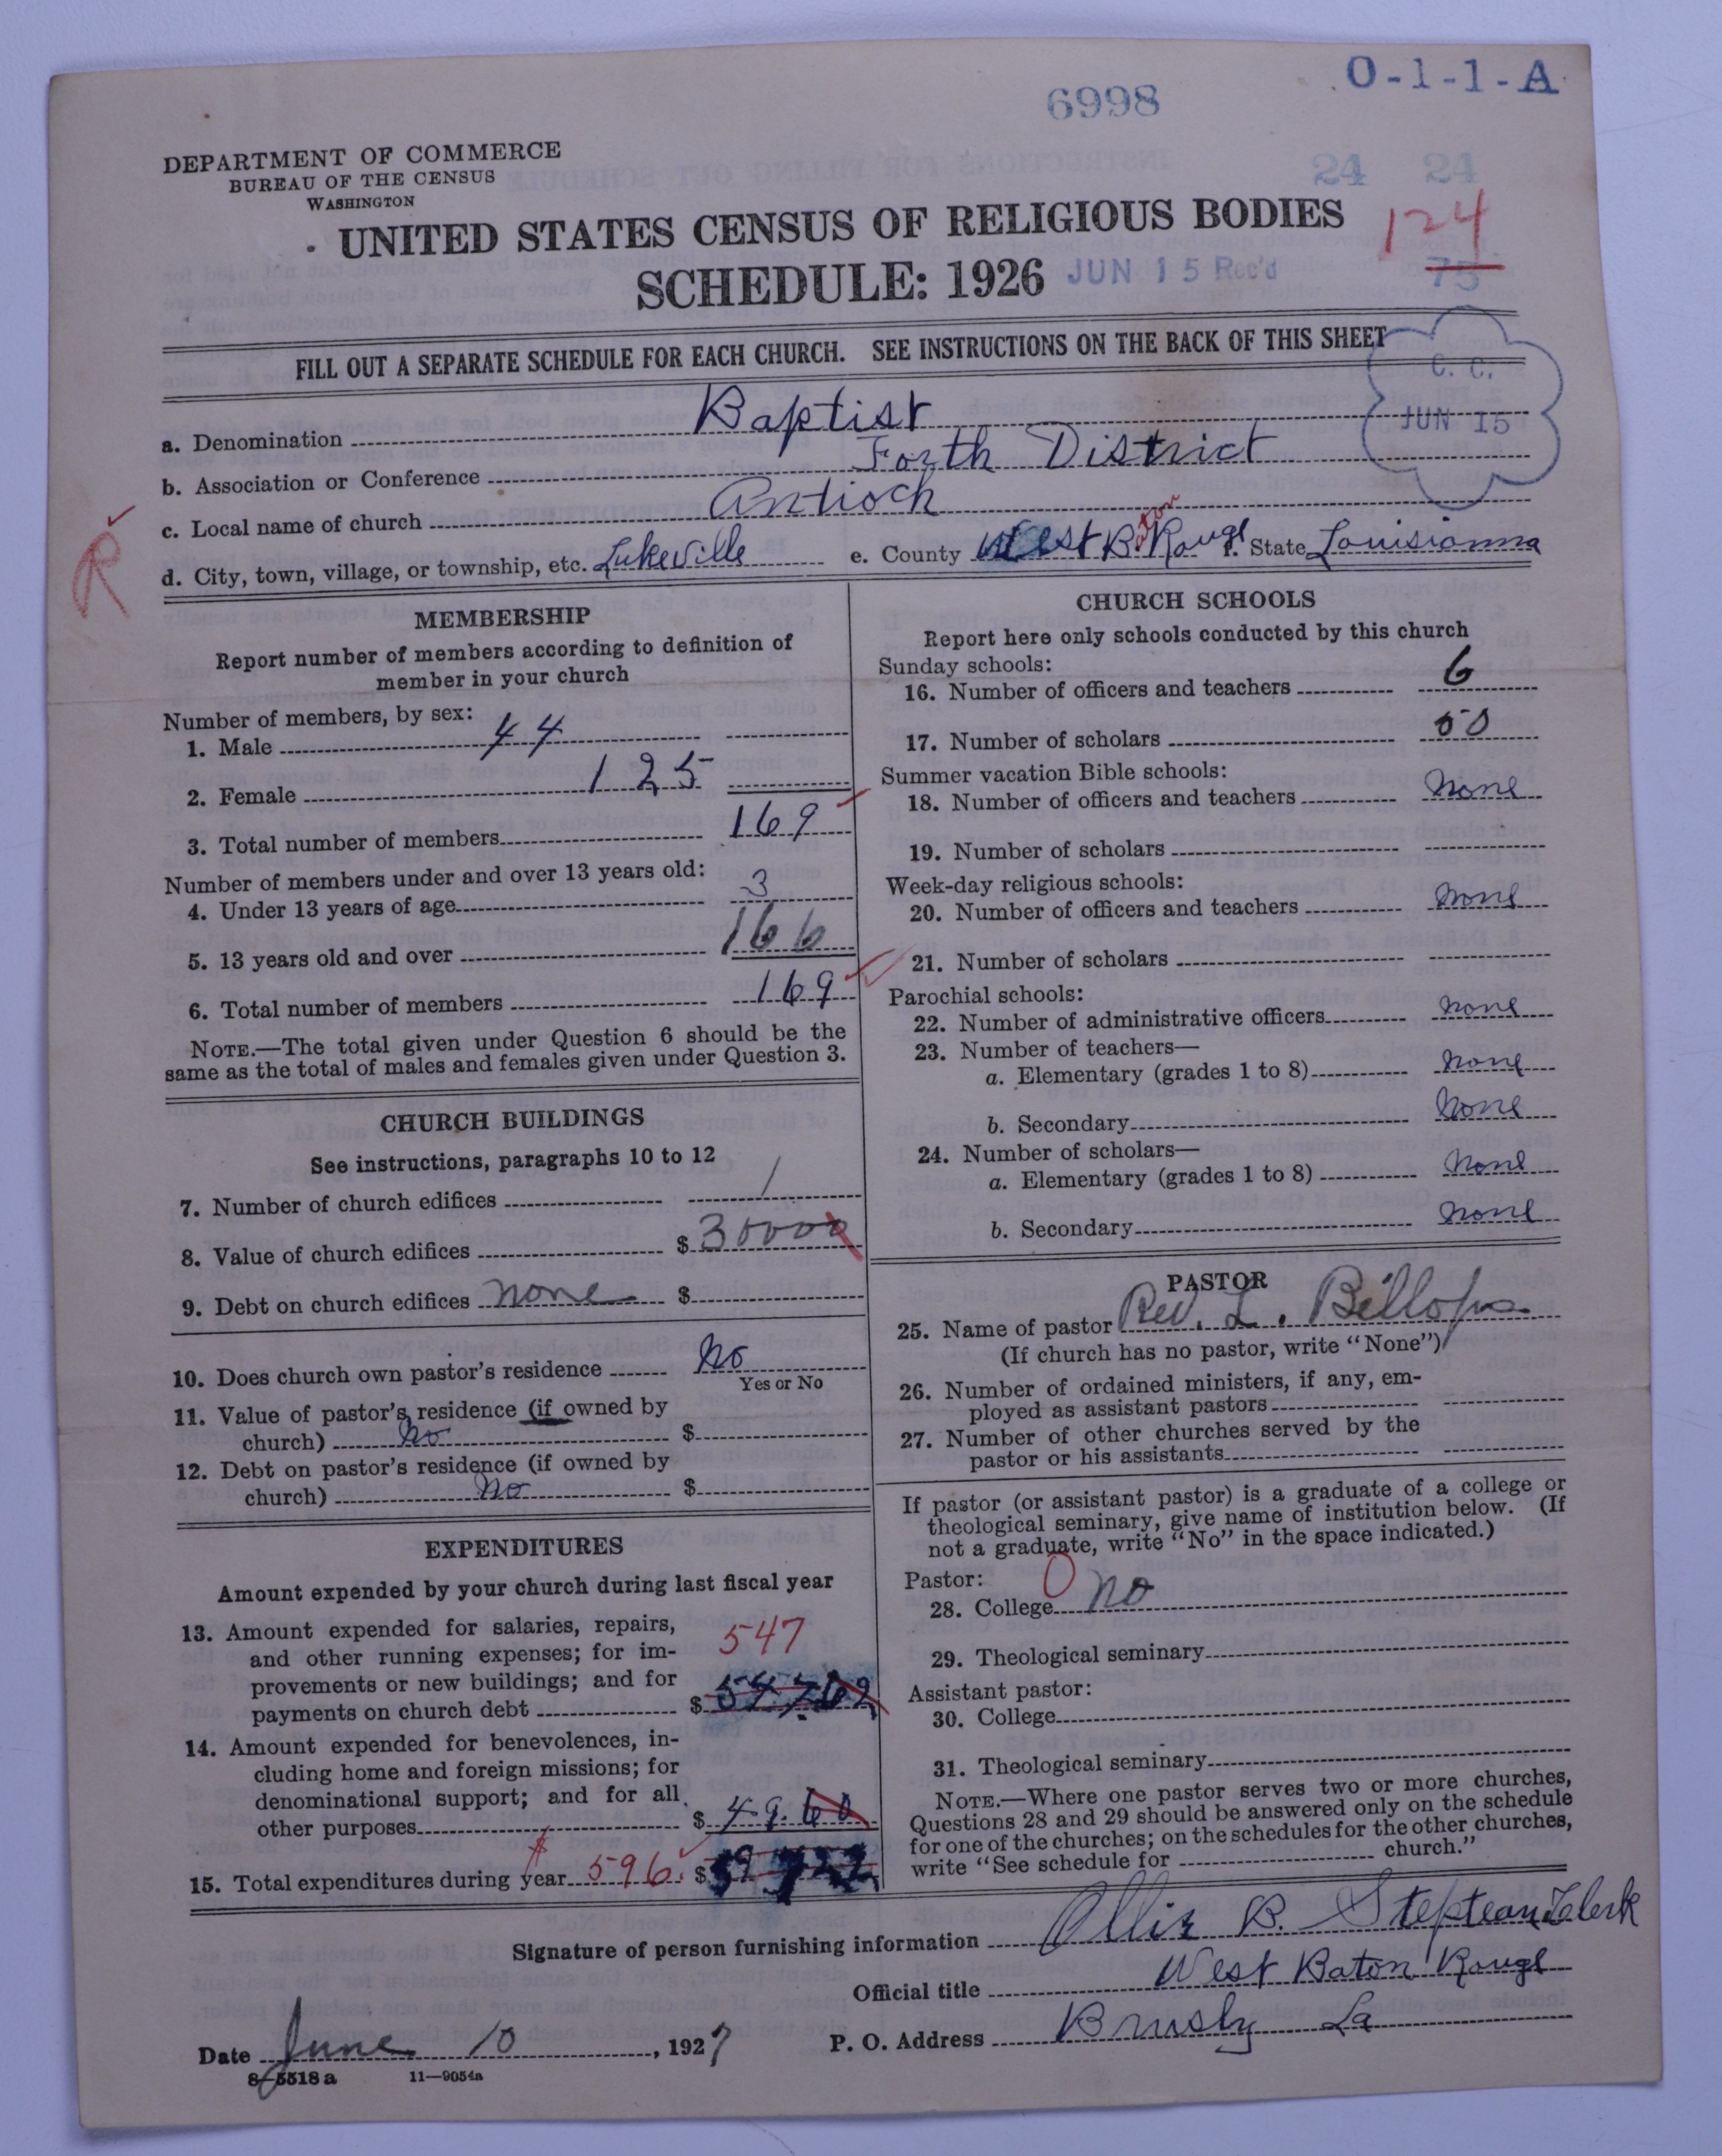 O-1-1-A
6998
DEPARTMENT OF COMMERCE
BUREAU OF THE CENSUS
WASHINGTON
24 24
124
75
UNITED STATES CENSUS OF RELIGIOUS BODIES
SCHEDULE: 1926 JUN 15 Rec'd
FILL OUT A SEPARATE SCHEDULE FOR EACH CHURCH. SEE INSTRUCTIONS ON THE BACK OF THIS SHEET
C. C.
JUN 15
a. Denomination Baptist
b. Association or Conference Forth District
c. Local name of church Antioch
d. City, town, village, or township, etc. Lukeville e. County West B. aton Rouge f. State Louisianna
R
MEMBERSHIP
Report number of members according to definition of
member in your church
Number of members, by sex:
1. Male 44
2. Female 125
3. Total number of members 169
Number of members under and over 13 years old:
4. Under 13 years of age 3
5. 13 years old and over 166
6. Total number of members 169
NOTE.—The total given under Question 6 should be the
same as the total of males and females given under Question 3.
CHURCH BUILDINGS
See instructions, paragraphs 10 to 12
7. Number of church edifices 1
8. Value of church edifices $ 30000
9. Debt on church edifices none $
10. Does church own pastor's residence No
Yes or No
11. Value of pastor's residence (if owned by
church) No $
12. Debt on pastor's residence (if owned by
church) No $
EXPENDITURES
Amount expended by your church during last fiscal year
13. Amount expended for salaries, repairs,
and other running expenses; for im-
provements or new buildings; and for
payments on church debt $ 547
14. Amount expended for benevolences, in-
cluding home and foreign missions; for
denominational support; and for all
other purposes $ 49.60
15. Total expenditures during year $ 596. $
CHURCH SCHOOLS
Report here only schools conducted by this church
Sunday schools:
16. Number of officers and teachers 6
17. Number of scholars 50
Summer vacation Bible schools:
18. Number of officers and teachers None
19. Number of scholars
Week-day religious schools:
20. Number of officers and teachers None
21. Number of scholars
Parochial schools:
22. Number of administrative officers None
23. Number of teachers—
a. Elementary (grades 1 to 8) None
b. Secondary None
24. Number of scholars—
a. Elementary (grades 1 to 8) None
b. Secondary None
PASTOR
25. Name of pastor Rev. L. Billops
(If church has no pastor, write "None")
26. Number of ordained ministers, if any, em-
ployed as assistant pastors
27. Number of other churches served by the
pastor or his assistants
If pastor (or assistant pastor) is a graduate of a college or
theological seminary, give name of institution below. (If
not a graduate, write "No" in the space indicated.)
Pastor: 0
28. College No
29. Theological seminary
Assistant pastor:
30. College
31. Theological seminary
NOTE.—Where one pastor serves two or more churches,
Questions 28 and 29 should be answered only on the schedule
for one of the churches; on the schedules for the other churches,
write "See schedule for church."
Signature of person furnishing information Ollie B. Steptean Clerk
Official title West Baton Rouge
Date June 10, 1927 P. O. Address Brusly La
8-5518 a 11—9054a